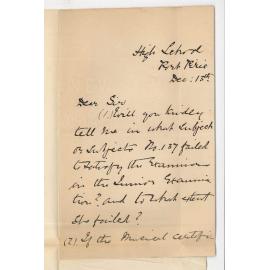 High School
Port Pirie
Dec: 15th
Dear Sir
(1) Will you kindly
tell me in what subject
or subjects No. 157 failed
to satisfy the Examiners
in the Junior Examina
tion? and to what extent
she failed?
(2) If the Musical certifi